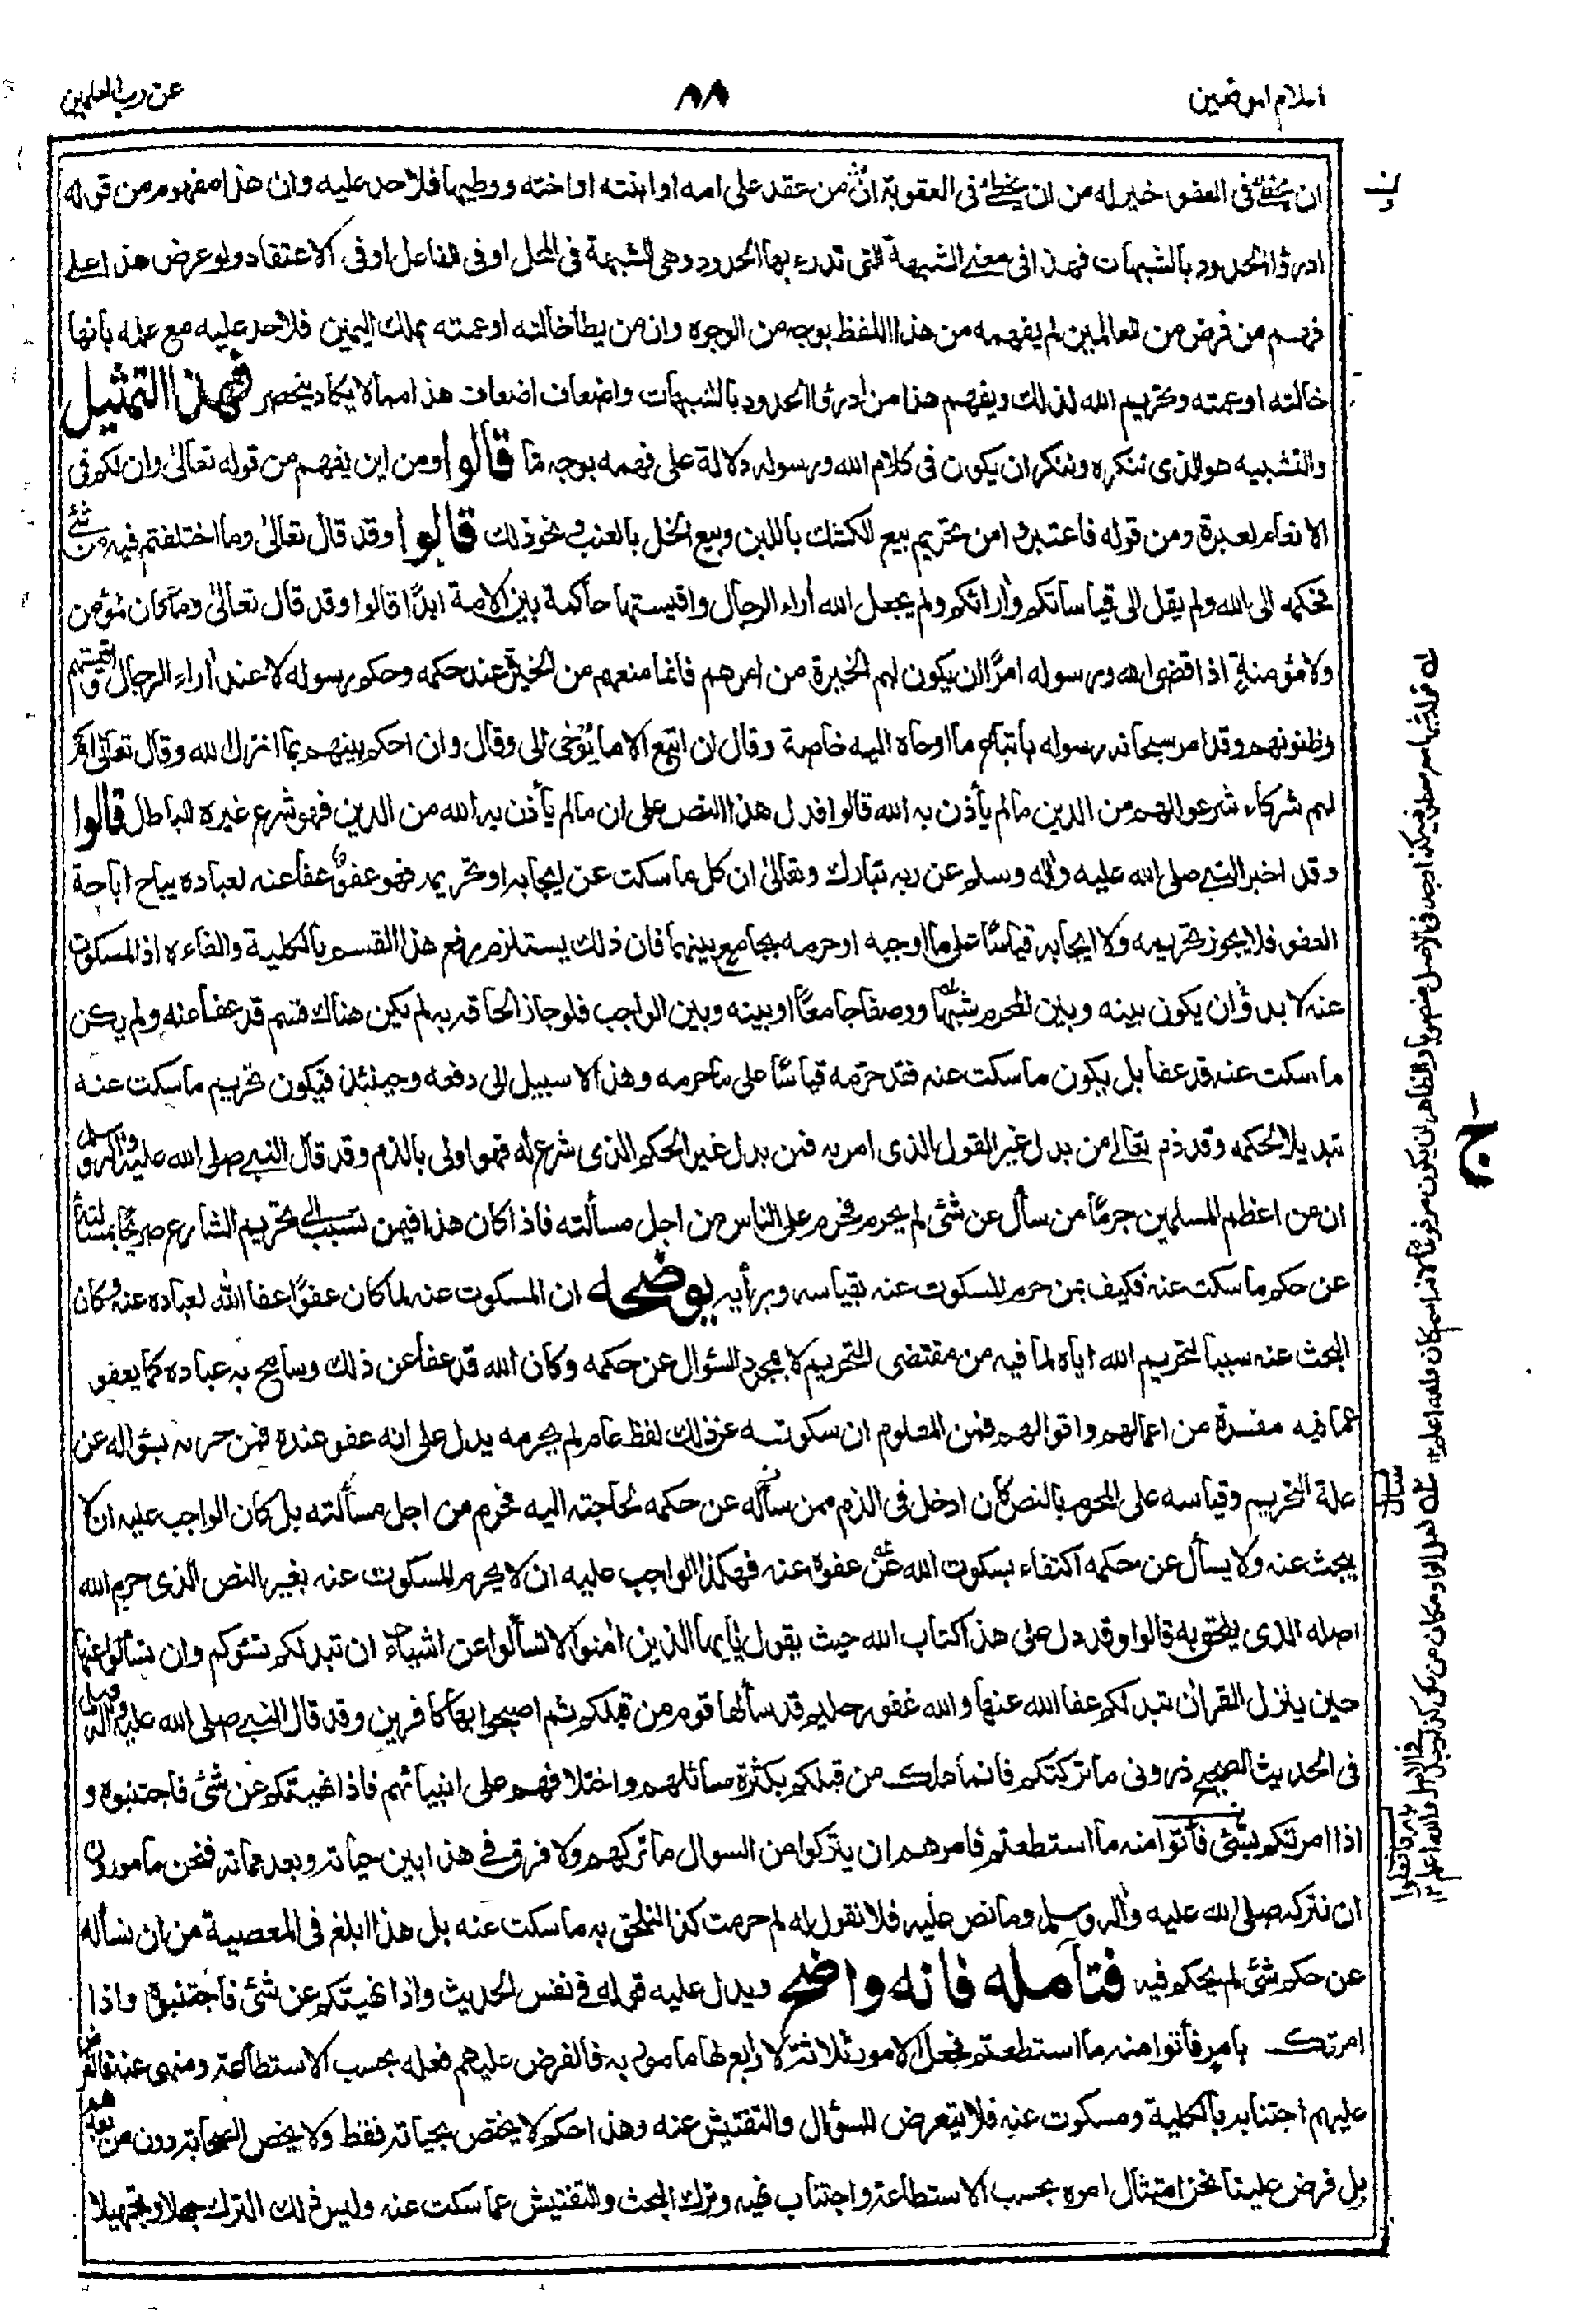 اعلام الموقعين
٨٨
عن رب العلمين
ان يخطئ فى العفو خير له من ان يخطئ فى العقوبة ان من عقد على امه او ابنته او اخته ووطيها فلا حد عليه وان هذا مفهوم من قوله
ادرؤا الحدود بالشبهات فهذا فى معنے الشبهة التى تدرء بها الحدود وهى الشبهة فى المحل او فى الفاعل او فى الاعتقاد ولو عرض هذا على
فهم من فرض من العالمين لم يفهمه من هذا اللفظ بوجه من الوجوه وان من يطأ خالته او عمته بملك اليمين فلا حد عليه مع علمه بانها
خالته او عمته وتحريم الله لذلك ويفهم هذا من ادرؤا الحدود بالشبهات واضعاف اضعاف هذا مما لا يكاد ينحصر فهذا التمثيل
والتشبيه هو الذى ننكره وننكر ان يكون فى كلام الله ورسوله دلالة على فهمه بوجه ما قالوا ومن اين يفهم من قوله تعالى وان لكم فى
الانعام لعبرة ومن قوله فاعتبروا من تحريم بيع الكشك باللبن وبيع الخل بالعنب ونحو ذلك قالوا وقد قال تعالى وما اختلفتم فيه من شئ
فحكمه الى الله ولم يقل الى قياساتكم وأرائكم ولم يجعل الله أراء الرجال واقيستها حاكمة بين الامة ابدًا قالوا وقد قال تعالى وما كان لمؤمن
ولا مؤمنةٍ اذا قضى الله ورسوله امرًا ان يكون لهم الخيرة من امرهم فانما منعهم من الخيرة عند حكمه وحكم رسوله لا عند أراء الرجال واقيستهم
وظنونهم وقد امر سبحانه رسوله باتباع ما اوحاه اليه خاصة وقال ان اتبع الا ما يُوحٰى الى وقال وان احكم بينهم بما انزل الله وقال تعالى ام
لهم شركاء شرعوا لهم من الدين ما لم يأذن به الله قالوا فدل هذا النص على ان ما لم يأذن به الله من الدين فهو شرع غيره الباطل قالوا
وقد اخبر النبے صلى الله عليه وأله وسلم عن ربه تبارك وتعالى ان كل ما سكت عن ايجابه او تحريمه فهو عفو عفا عنه لعباده يباح اباحة
العفو فلا يجوز تحريمه ولا ايجابه قياسًا على ما اوجبه او حرمه بجامع بينهما فان ذلك يستلزم رفع هذا القسم بالكلية والغاءه اذ المسكوت
عنه لا بد وان يكون بينه وبين المحرم شبها ووصفا جامعًا او بينه وبين الواجب فلو جاز الحاقه به لم يكن هناك قسم قد عفا عنه ولم يكن
ما سكت عنه قد عفا بل يكون ما سكت عنه فقد حرّمه قياسًا على ما حرمه وهذا لا سبيل الى دفعه وحينئذ فيكون تحريم ما سكت عنه
تبديلا لحكمه وقد ذم تعالے من بدل غير القول الذى امر به فمن بدل غير الحكم الذى شرع له فهو اولى بالذم وقد قال النبے صلى الله عليه واله وسلم
ان من اعظم المسلمين جرمًا من سأل عن شئ لم يحرم فحرم على الناس من اجل مسألته فاذا كان هذا فيمن تسبب الى تحريم الشارع صريحًا بمسألته
عن حكم ما سكت عنه فكيف بمن حرم المسكوت عنه بقياسه وبرأيه يوضحه ان المسكوت عنه لما كان عفوًا عفا الله لعباده عنه وكان
البحث عنه سببا لتحريم الله اياه لما فيه من مقتضى التحريم لا لمجرد السؤال عن حكمه وكان الله قد عفا عن ذلك وسامح به عباده كما يعفو
عما فيه مفسدة من اعمالهم واقوالهم فمن المعلوم ان سكوته عن ذلك لفظ عام لم يحرمه يدل على انه عفو عنده فمن حرمه بسؤاله عن
علة التحريم وقياسه على المحرم بالنص كان ادخل فى الذم ممن سأله عن حكمه لحاجته اليه فحرم من اجل مسألته بل كان الواجب عليه ان لا
يبحث عنه ولا يسأل عن حكمه اكتفاء بسكوت الله عن عفوه عنه فهكذا الواجب عليه ان لا يحرم المسكوت عنه بغير النص الذى حرم الله
اصله الذى يلحق به قالوا وقد دل على هذا كتاب الله حيث يقول يٰايها الذين أمنوا لا تسألوا عن اشياء ان تبد لكم تسؤكم وان تسألوا عنها
حين ينزل القرأن تبد لكم عفا الله عنها والله غفور حليم قد سألها قوم من قبلكم ثم اصبحوا بها كافرين وقد قال النبے صلى الله عليه واله وسلم
فى الحديث الصحيح ذرونى ما تركتكم فانما هلك من قبلكم بكثرة مسائلهم واختلافهم على انبيائهم فاذا نهيتكم عن شئ فاجتنبوه و
اذا امرتكم بشئ فأتوا منه ما استطعتم فامرهم ان يتركوا من السوال ما تركهم ولا فرق فے هذا بين حياته وبعد مماته فنحن مامورون
ان نتركه صلى الله عليه وأله وسلم وما نص عليه فلا نقول له لم حرمت كذا لنلحق به ما سكت عنه بل هذا ابلغ فى المعصية من ان نسأله
عن حكم شئ لم يحكم فيه فتأمله فانه واضح ويدل عليه قوله فے نفس الحديث واذا نهيتكم عن شئ فاجتنبوه واذا
امرتكم بامرٍ فأتوا منه ما استطعتم فجعل الامور ثلاثة لا رابع لها مامور به فالفرض عليهم فعله بحسب الاستطاعة ومنهى عنه فالفرض
عليهم اجتنابه بالكلية ومسكوت عنه فلا يتعرض للسؤال والتفتيش عنه وهذا حكم لا يختص بحياته فقط ولا يخص الصحابة دون من بعدهم
بل فرض علينا نحن امتثال امره بحسب الاستطاعة واجتناب نهيه وترك البحث والتفتيش عما سكت عنه وليس ذلك الترك جهلا وتجهيلا
ج